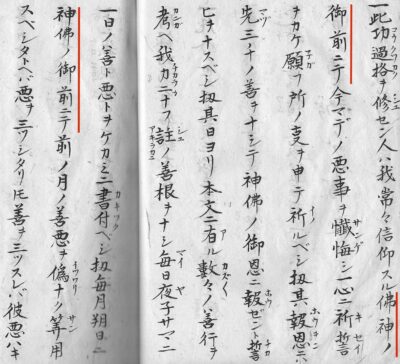 一此功過格ヲ修セン人ハ我常々信仰スル佛神ノ
御前ニテ今マデノ悪事ヲ懺悔シ一心ニ祈誓
ヲカケ願フ所ノ叓ヲ申テ祈ルベシ扨其報恩ニハ
先三千ノ善ヲナシテ神佛ノ御恩ニ報ゼント誓
ヒヲナスベシ扨其日ヨリ本文ニ有ル數々ノ善行ヲ
考ヘ我力ニナフ ノ善根ヲナシ毎日夜子サマニ
一日ノ善ト悪トヲケカミニ書付ベシ扨毎月朔日ニ
神佛ノ御前ニテ前ノ月ノ善悪ヲ偽ナク筭用
スベシタトヘバ悪ヲ三ツシタリ𪜈善ヲ三ツスレバ彼悪ハキ